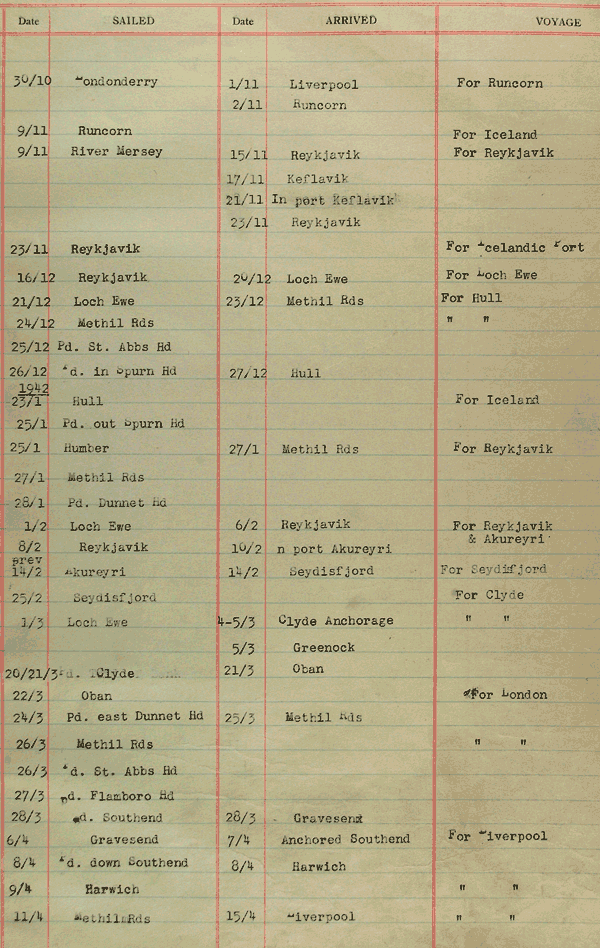 Date SAILED Date ARRIVED VOYAGE
30/10 Londonderry 1/11 Liverpool For Runcorn
2/11 Runcorn
9/11 Runcorn For Iceland
9/11 River Mersey 15/11 Reykjavik For Reykjavik
17/11 Keflavik
21/11 In port Keflavik
23/11 Reykjavik
23/11 Reykjavik For Icelandic Port
16/12 Reykjavik 20/12 Loch Ewe For Loch Ewe
21/12 Loch Ewe 23/12 Methil Rds For Hull
24/12 Methil Rds " "
25/12 Pd. St. Abbs Hd
26/12 Pd. in Spurn Hd 27/12 Hull
1942
23/1 Hull For Iceland
25/1 Pd. out Spurn Hd
25/1 Humber 27/1 Methil Rds For Reykjavik
27/1 Methil Rds
28/1 Pd. Dunnet Hd
1/2 Loch Ewe 6/2 Reykjavik For Reykjavik
& Akureyri
8/2 Reykjavik 10/2 n port Akureyri
prev
14/2 Akureyri 14/2 Seydisfjord For Seydisfjord
25/2 Seydisfjord For Clyde
1/3 Loch Ewe 4-5/3 Clyde Anchorage " "
5/3 Greenock
20/21/3 Pd. Clyde 21/3 Oban
22/3 Oban For London
24/3 Pd. east Dunnet Hd 25/3 Methil Rds
26/3 Methil Rds " "
26/3 Pd. St. Abbs Hd
27/3 pd. Flamboro Hd
28/3 Pd. Southend 28/3 Gravesend
6/4 Gravesend 7/4 Anchored Southend For Liverpool
8/4 Pd. down Southend 8/4 Harwich
9/4 Harwich " "
11/4 Methil Rds 15/4 Liverpool " "